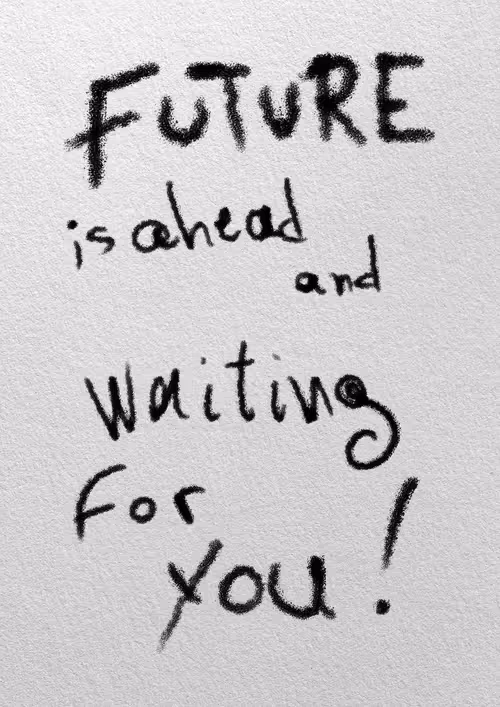 FUTURE
is ahead
and
waiting
for
you!